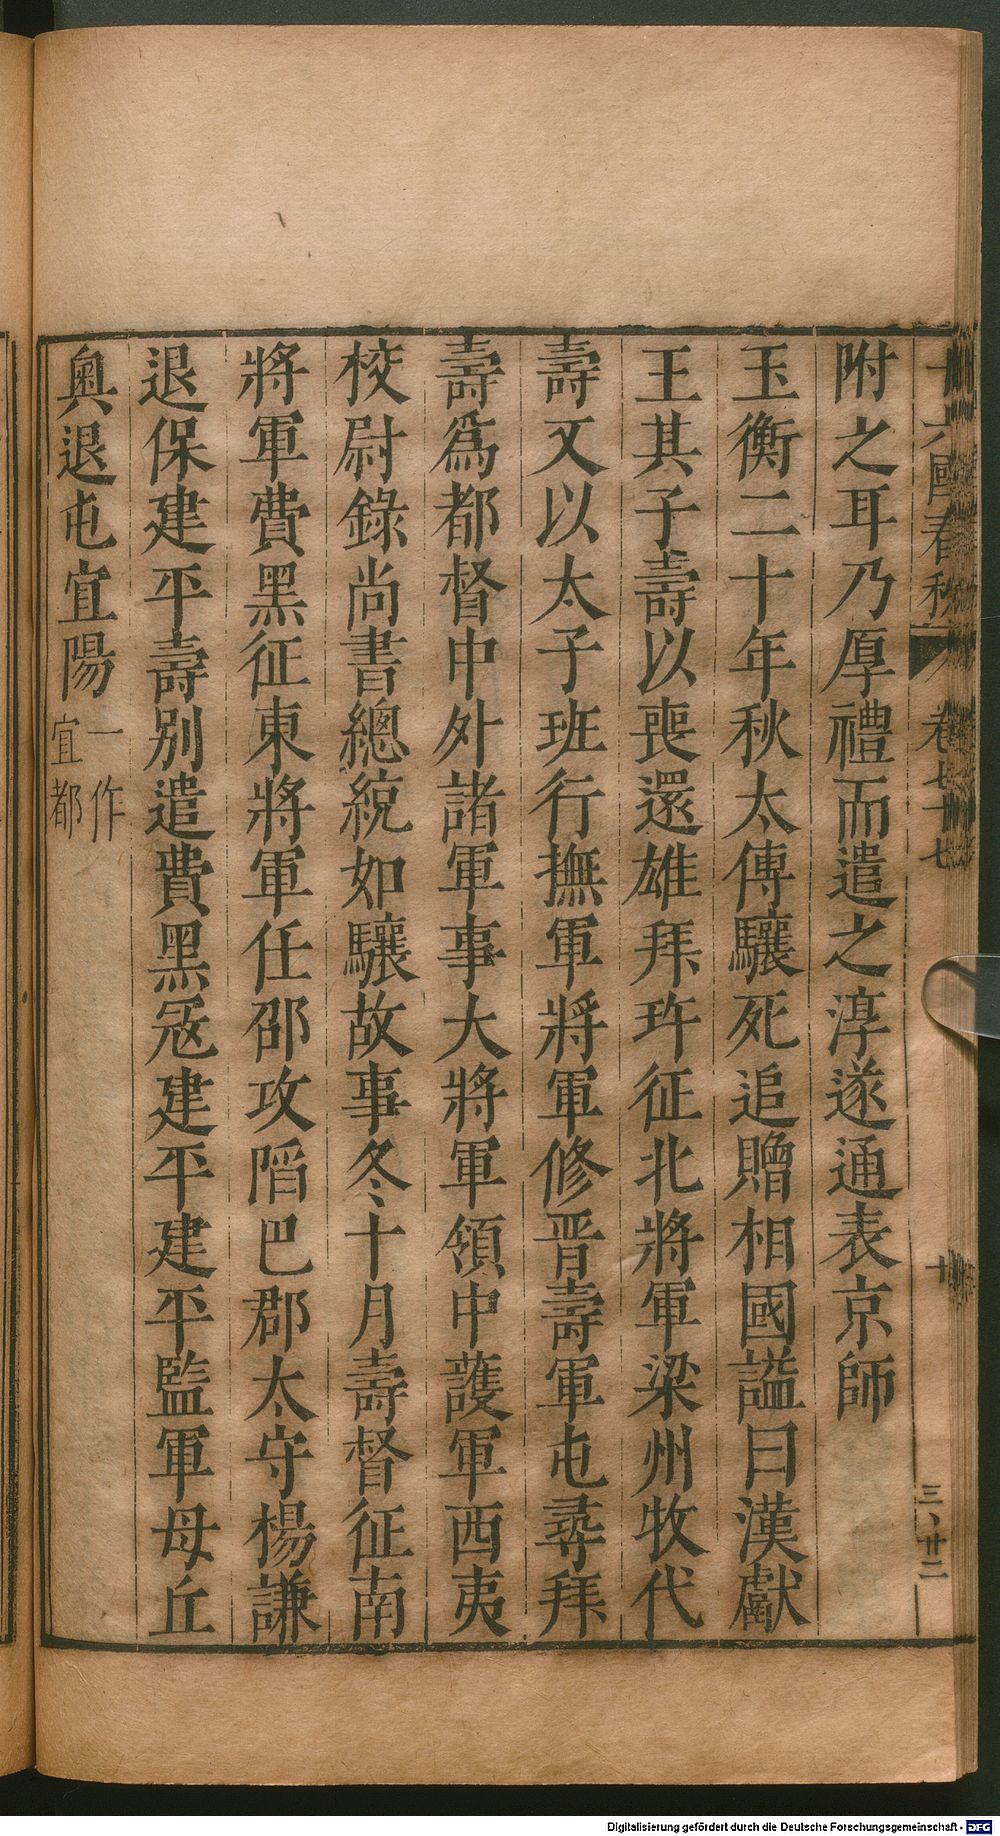 十六國春秋 卷七十七 十 三、廿二
附之耳乃厚禮而遣之淳遂通表京師
玉衡二十年秋太傅驤死追贈相國謚曰漢獻
王其子壽以喪還雄拜玝征北將軍梁州牧代
壽又以太子班行撫軍將軍修晋壽軍屯尋拜
壽爲都督中外諸軍事大將軍領中護軍西夷
校尉錄尚書總統如驤故事冬十月壽督征南
將軍費黑征東將軍任邵攻䧟巴郡太守楊謙
退保建平壽別遣費黑冦建平建平監軍母丘
奧退屯宜陽一作宜都
Digitalisierung gefördert durch die Deutsche Forschungsgemeinschaft - DFG